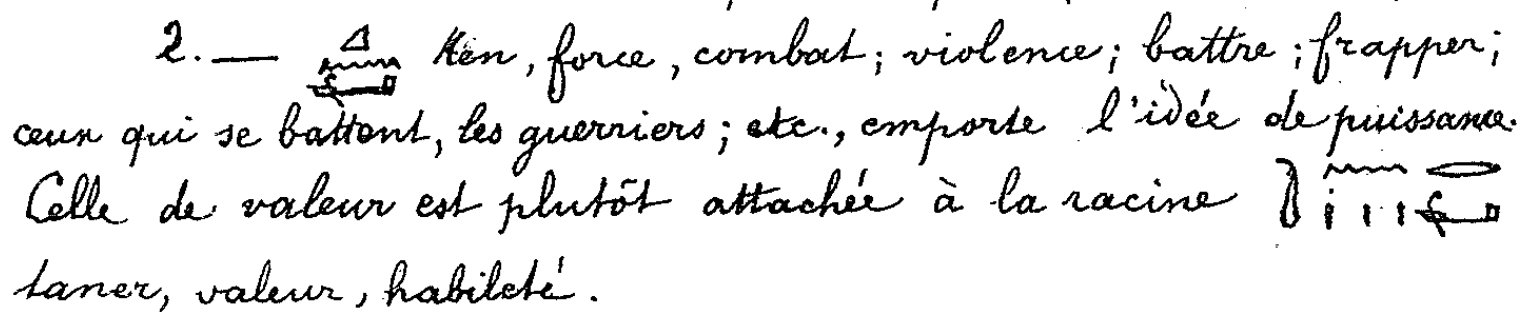 2. — 𓈎𓈖𓂡 Ken, force, combat; violence; battre; frapper;
ceux qui se battent, les guerriers; etc., emporte l'idée de puissance.
Celle de valeur est plutôt attachée à la racine
taner, valeur, habileté.